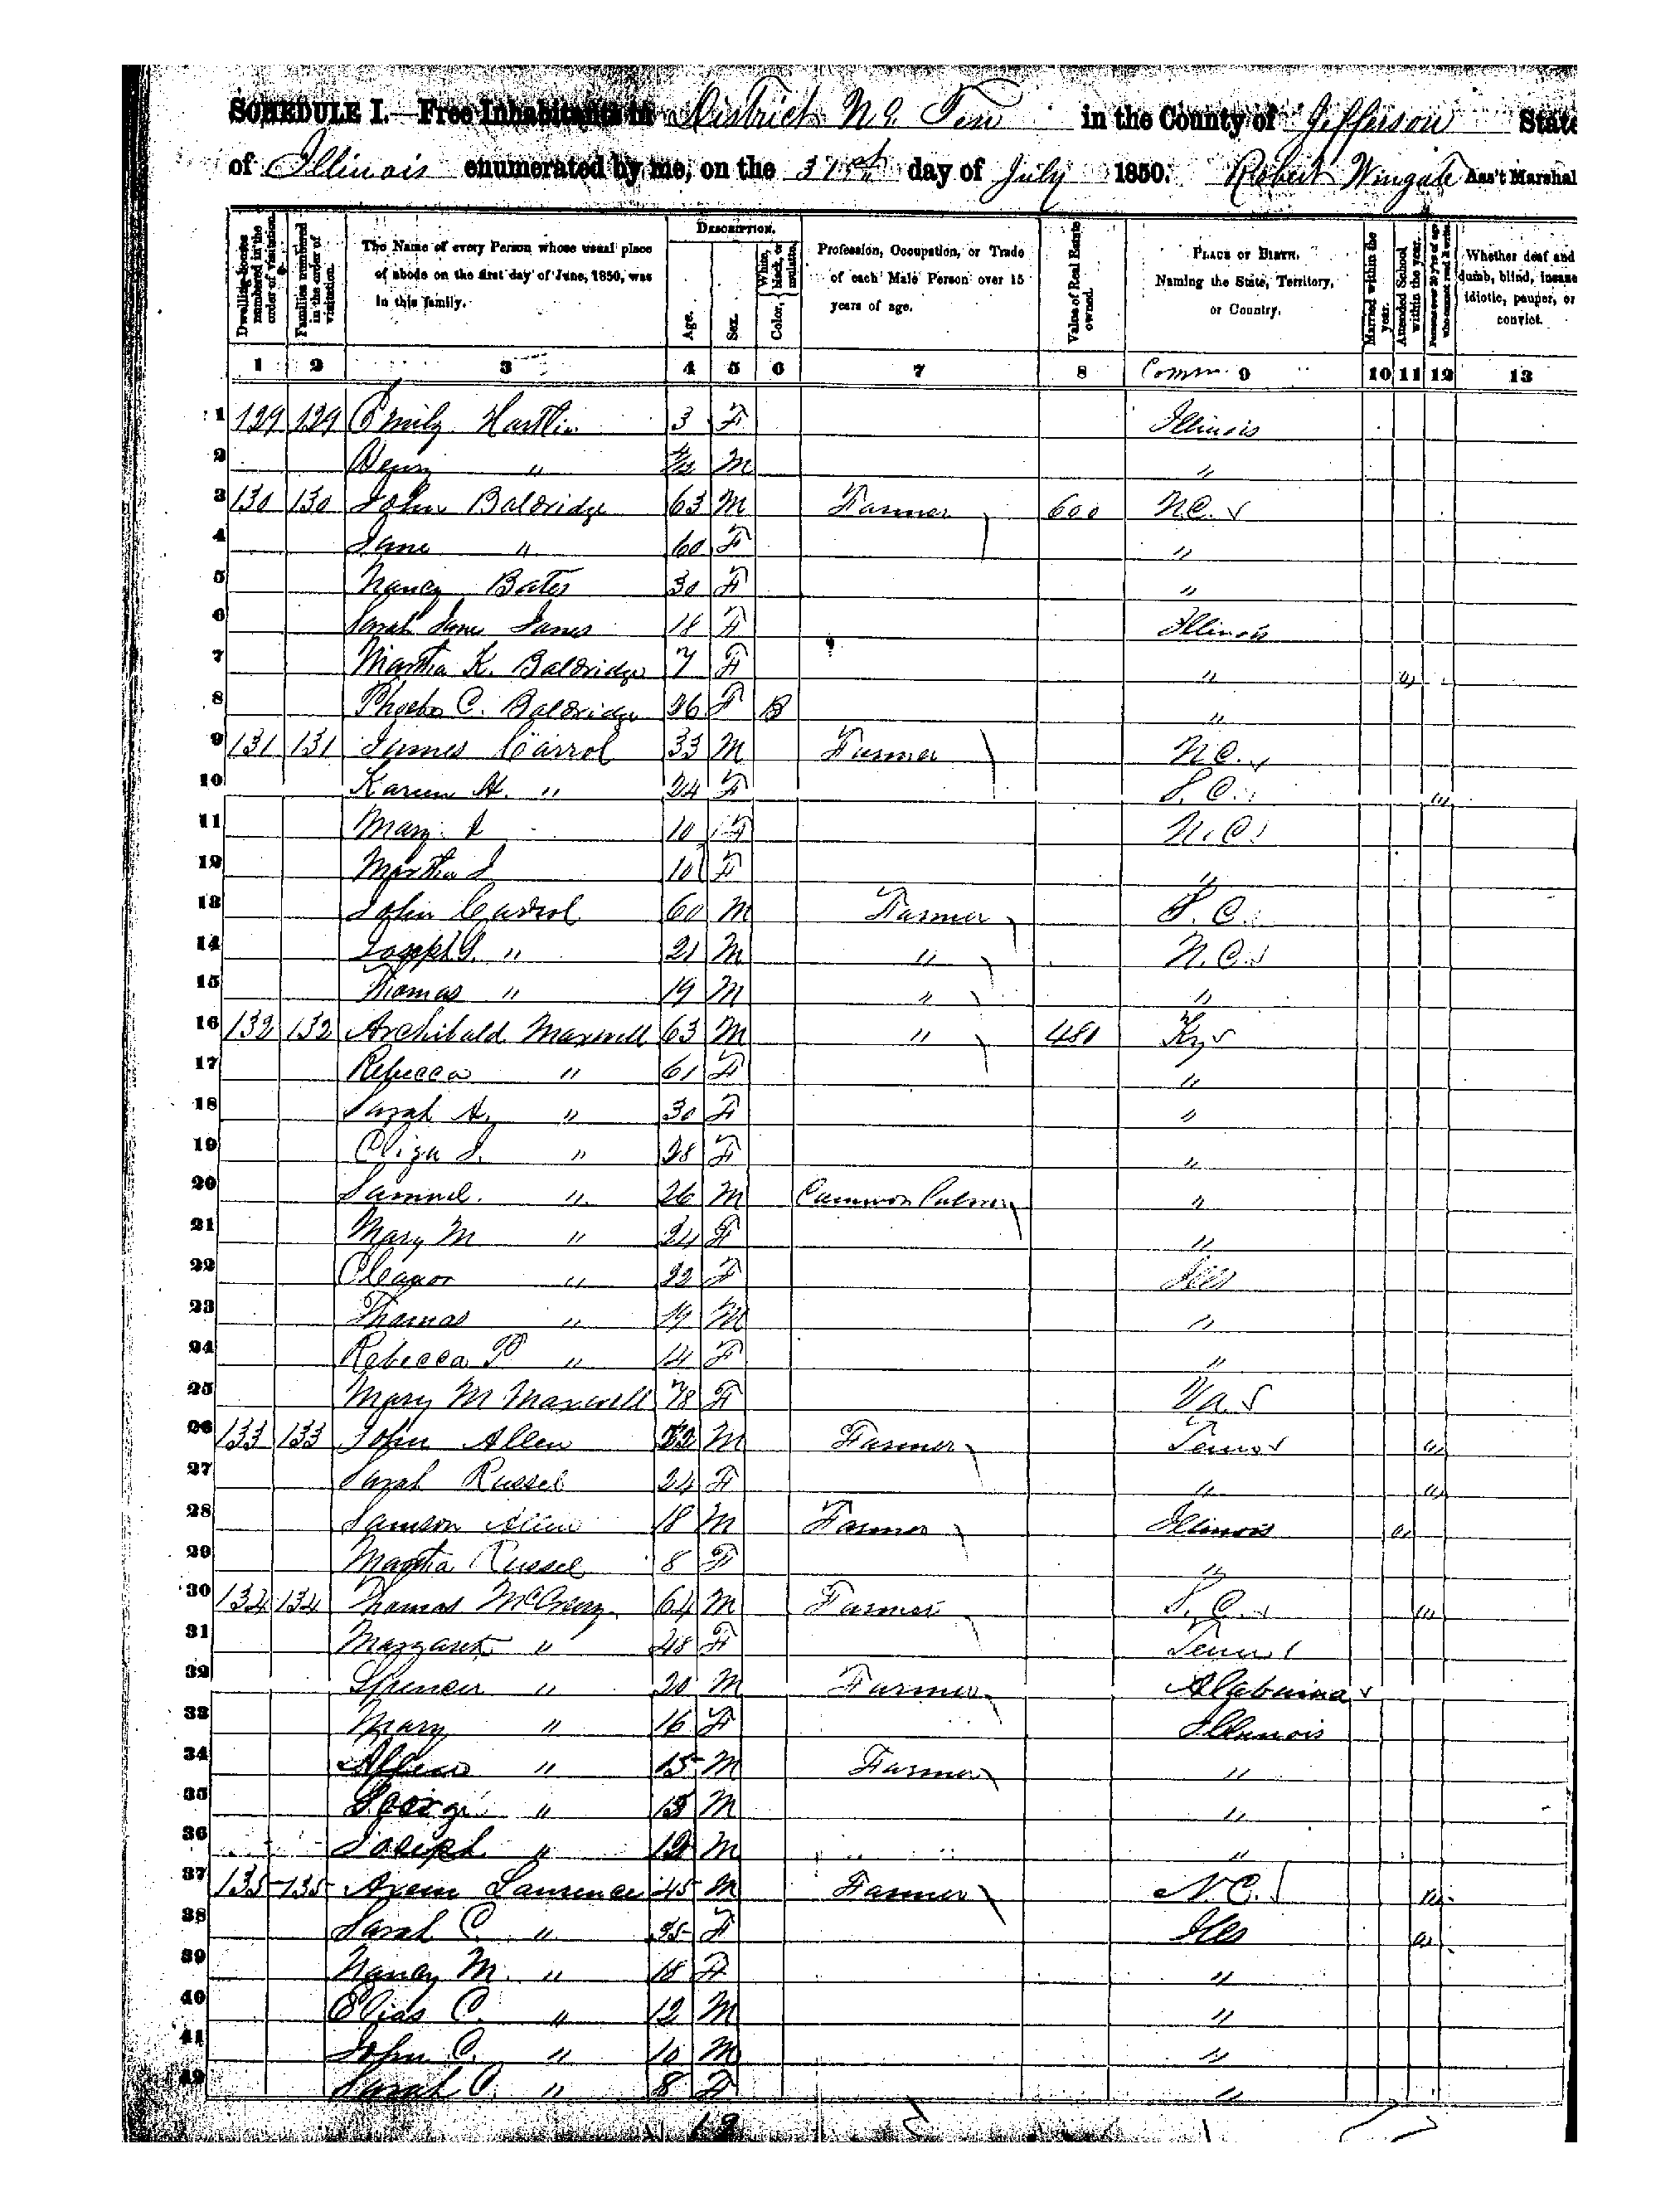 SCHEDULE I.—Free Inhabitants in District No Ten in the County of Jefferson State
of Illinois enumerated by me, on the 31st day of July 1850. Robert Wingate Ass't Marshal
Dwelling-houses numbered in the order of visitation.
Families numbered in the order of visitation.
The Name of every Person whose usual place of abode on the first day of June, 1850, was in this family.
DESCRIPTION.
Age.
Sex.
Color, White, black, or mulatto.
Profession, Occupation, or Trade of each Male Person over 15 years of age.
Value of Real Estate owned.
PLACE OF BIRTH. Naming the State, Territory, or Country.
Married within the year.
Attended School within the year.
Persons over 20 y'rs of age who cannot read & write.
Whether deaf and dumb, blind, insane, idiotic, pauper, or convict.
1 2 3 4 5 6 7 8 9 10 11 12 13
1 129 129 Emily 3 F Illinois
2 Henry " M "
3 130 130 John Baldridge 63 M Farmer 600 N.C.
4 Jane " 60 F "
5 Nancy Bates 30 F "
6 Sarah Jane 18 F Illinois
7 Martha K. Baldridge 7 F " "
8 Phoebe C. Baldridge 26 F B "
9 131 131 James Carrol 33 M Farmer N.C.
10 H. " 24 F S.C. "
11 Mary 10 F N.C.
12 Martha J 10 F "
13 John Carrol 60 M Farmer S.C.
14 Joseph " 21 M " N.C.
15 Thomas " 19 M " "
16 132 132 Archibald Maxwell 63 M " 480 Ky
17 Rebecca " 61 F "
18 Sarah A. " 30 F "
19 Eliza J. " 28 F "
20 Samuel " 26 M Common "
21 Mary M " 24 F "
22 Eleanor " 22 F Ills
23 Thomas " 19 M "
24 Rebecca P " 14 F "
25 Mary M Maxwell 78 F Va
26 133 133 John Allen M Farmer Tenn "
27 Sarah Russel 24 F " "
28 Samson Allen 18 M Farmer Illinois "
29 Martha Russel 8 F "
30 134 134 Thomas 64 M Farmer S.C. "
31 Margaret " 48 F Tenn
32 Spencer " 20 M Farmer Alabama
33 Mary " 16 F Illinois
34 " 15 M Farmer "
35 George " M "
36 Joseph " 12 M "
37 135 135 Laurence 45 M Farmer N.C. "
38 Sarah C. " 35 F Ills "
39 Nancy M. " 18 F "
40 Elias C. " 12 M "
41 John C. " 10 M "
42 Sarah C. " 8 F "